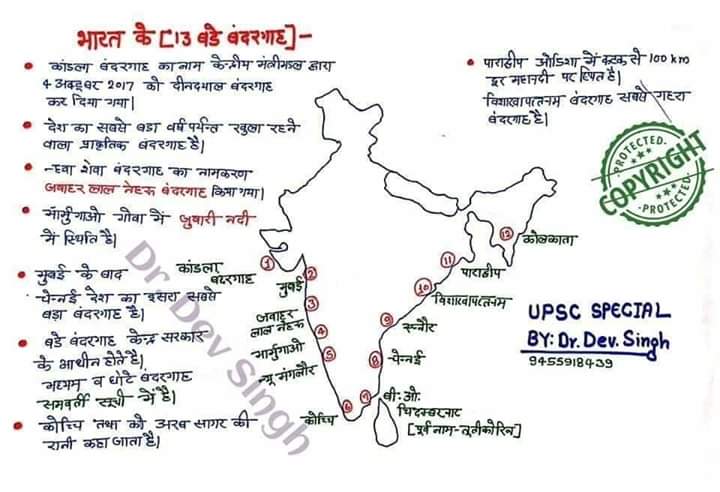 भारत के [13 बड़े बंदरगाह]-
• कांडला बंदरगाह का नाम केन्द्रीय मंत्रीमंडल द्वारा
4 अक्टूबर 2017 को दीनदयाल बंदरगाह
कर दिया गया।
• देश का सबसे बड़ा वर्ष पर्यन्त खुला रहने
वाला प्राकृतिक बंदरगाह है।
• न्हवा शेवा बंदरगाह का नामकरण
जवाहर लाल नेहरू बंदरगाह किया गया।
• मार्मुगाओ गोवा में जुवारी नदी
में स्थिति है।
• मुंबई के बाद
चेन्नई देश का दूसरा सबसे
बड़ा बंदरगाह है।
• बड़े बंदरगाह केन्द्र सरकार
के आधीन होते है।
मध्यम व छोटे बंदरगाह
समवर्ती सूची में है।
• कोच्चि तथा को अरब सागर की
रानी कहा जाता है।
• पाराद्वीप ओडिशा में कटक से 100 km
दूर महानदी पर स्थित है।
विशाखापत्तनम बंदरगाह सबसे गहरा
बंदरगाह है।
PROTECTED
COPYRIGHT
PROTECTED
1 कांडला
बंदरगाह
2 मुंबई
3 जवाहर
लाल नेहरू
4 मार्मुगाओ
5 न्यू मंगलौर
6 कोच्चि
7 वी॰ ओ॰
चिदम्बरनार
[पूर्व नाम-तूतीकोरिन]
8 चेन्नई
9 एन्नौर
10 विशाखापत्तनम
11 पाराद्वीप
12 कोलकाता
UPSC SPECIAL
BY: Dr. Dev. Singh
9455918439
Dr. Dev Singh